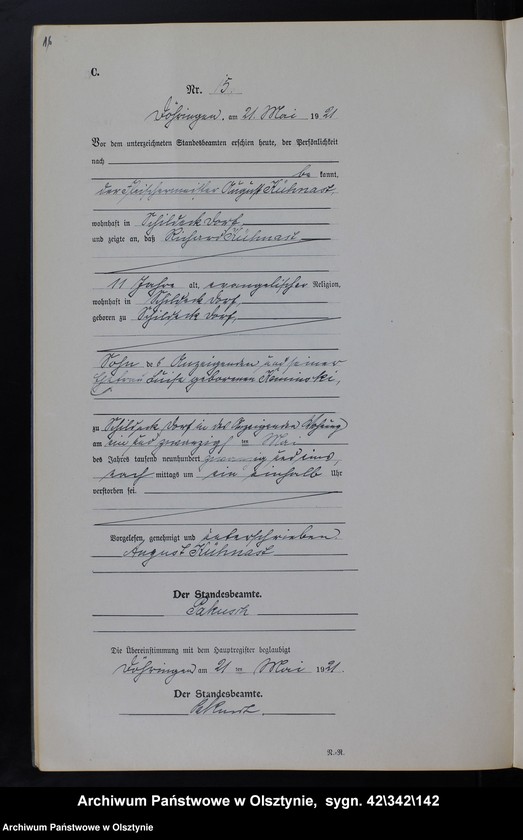 16
C.
Nr. 15.
Döhringen, am 21. Mai 1921
Vor dem unterzeichneten Standesbeamten erschien heute, der Persönlichkeit
nach
be kannt,
der Fleischermeister August Kühnast
wohnhaft in Schildeck Dorf
und zeigte an, daß Richard Kühnast
11 Jahre alt, evangelischer Religion,
wohnhaft in Schildeck Dorf
geboren zu Schildeck Dorf,
Sohn des Anzeigenden und seiner
Ehefrau Luise geborenen Kaminski,
zu Schildeck Dorf in des Anzeigenden Wohnung
am ein und zwanzigsten Mai
des Jahrs tausend neunhundert zwanzig und eins,
nach mittags um ein einhalb Uhr
verstorben sei.
Vorgelesen, genehmigt und unterschrieben
August Kühnast
Der Standesbeamte.
Die Übereinstimmung mit dem Hauptregister beglaubigt
Döhringen am 21 ten Mai 1921.
Der Standesbeamte.
R.-R.
Archiwum Państwowe w Olsztynie, sygn. 42\342\142
Archiwum Państwowe w Olsztynie